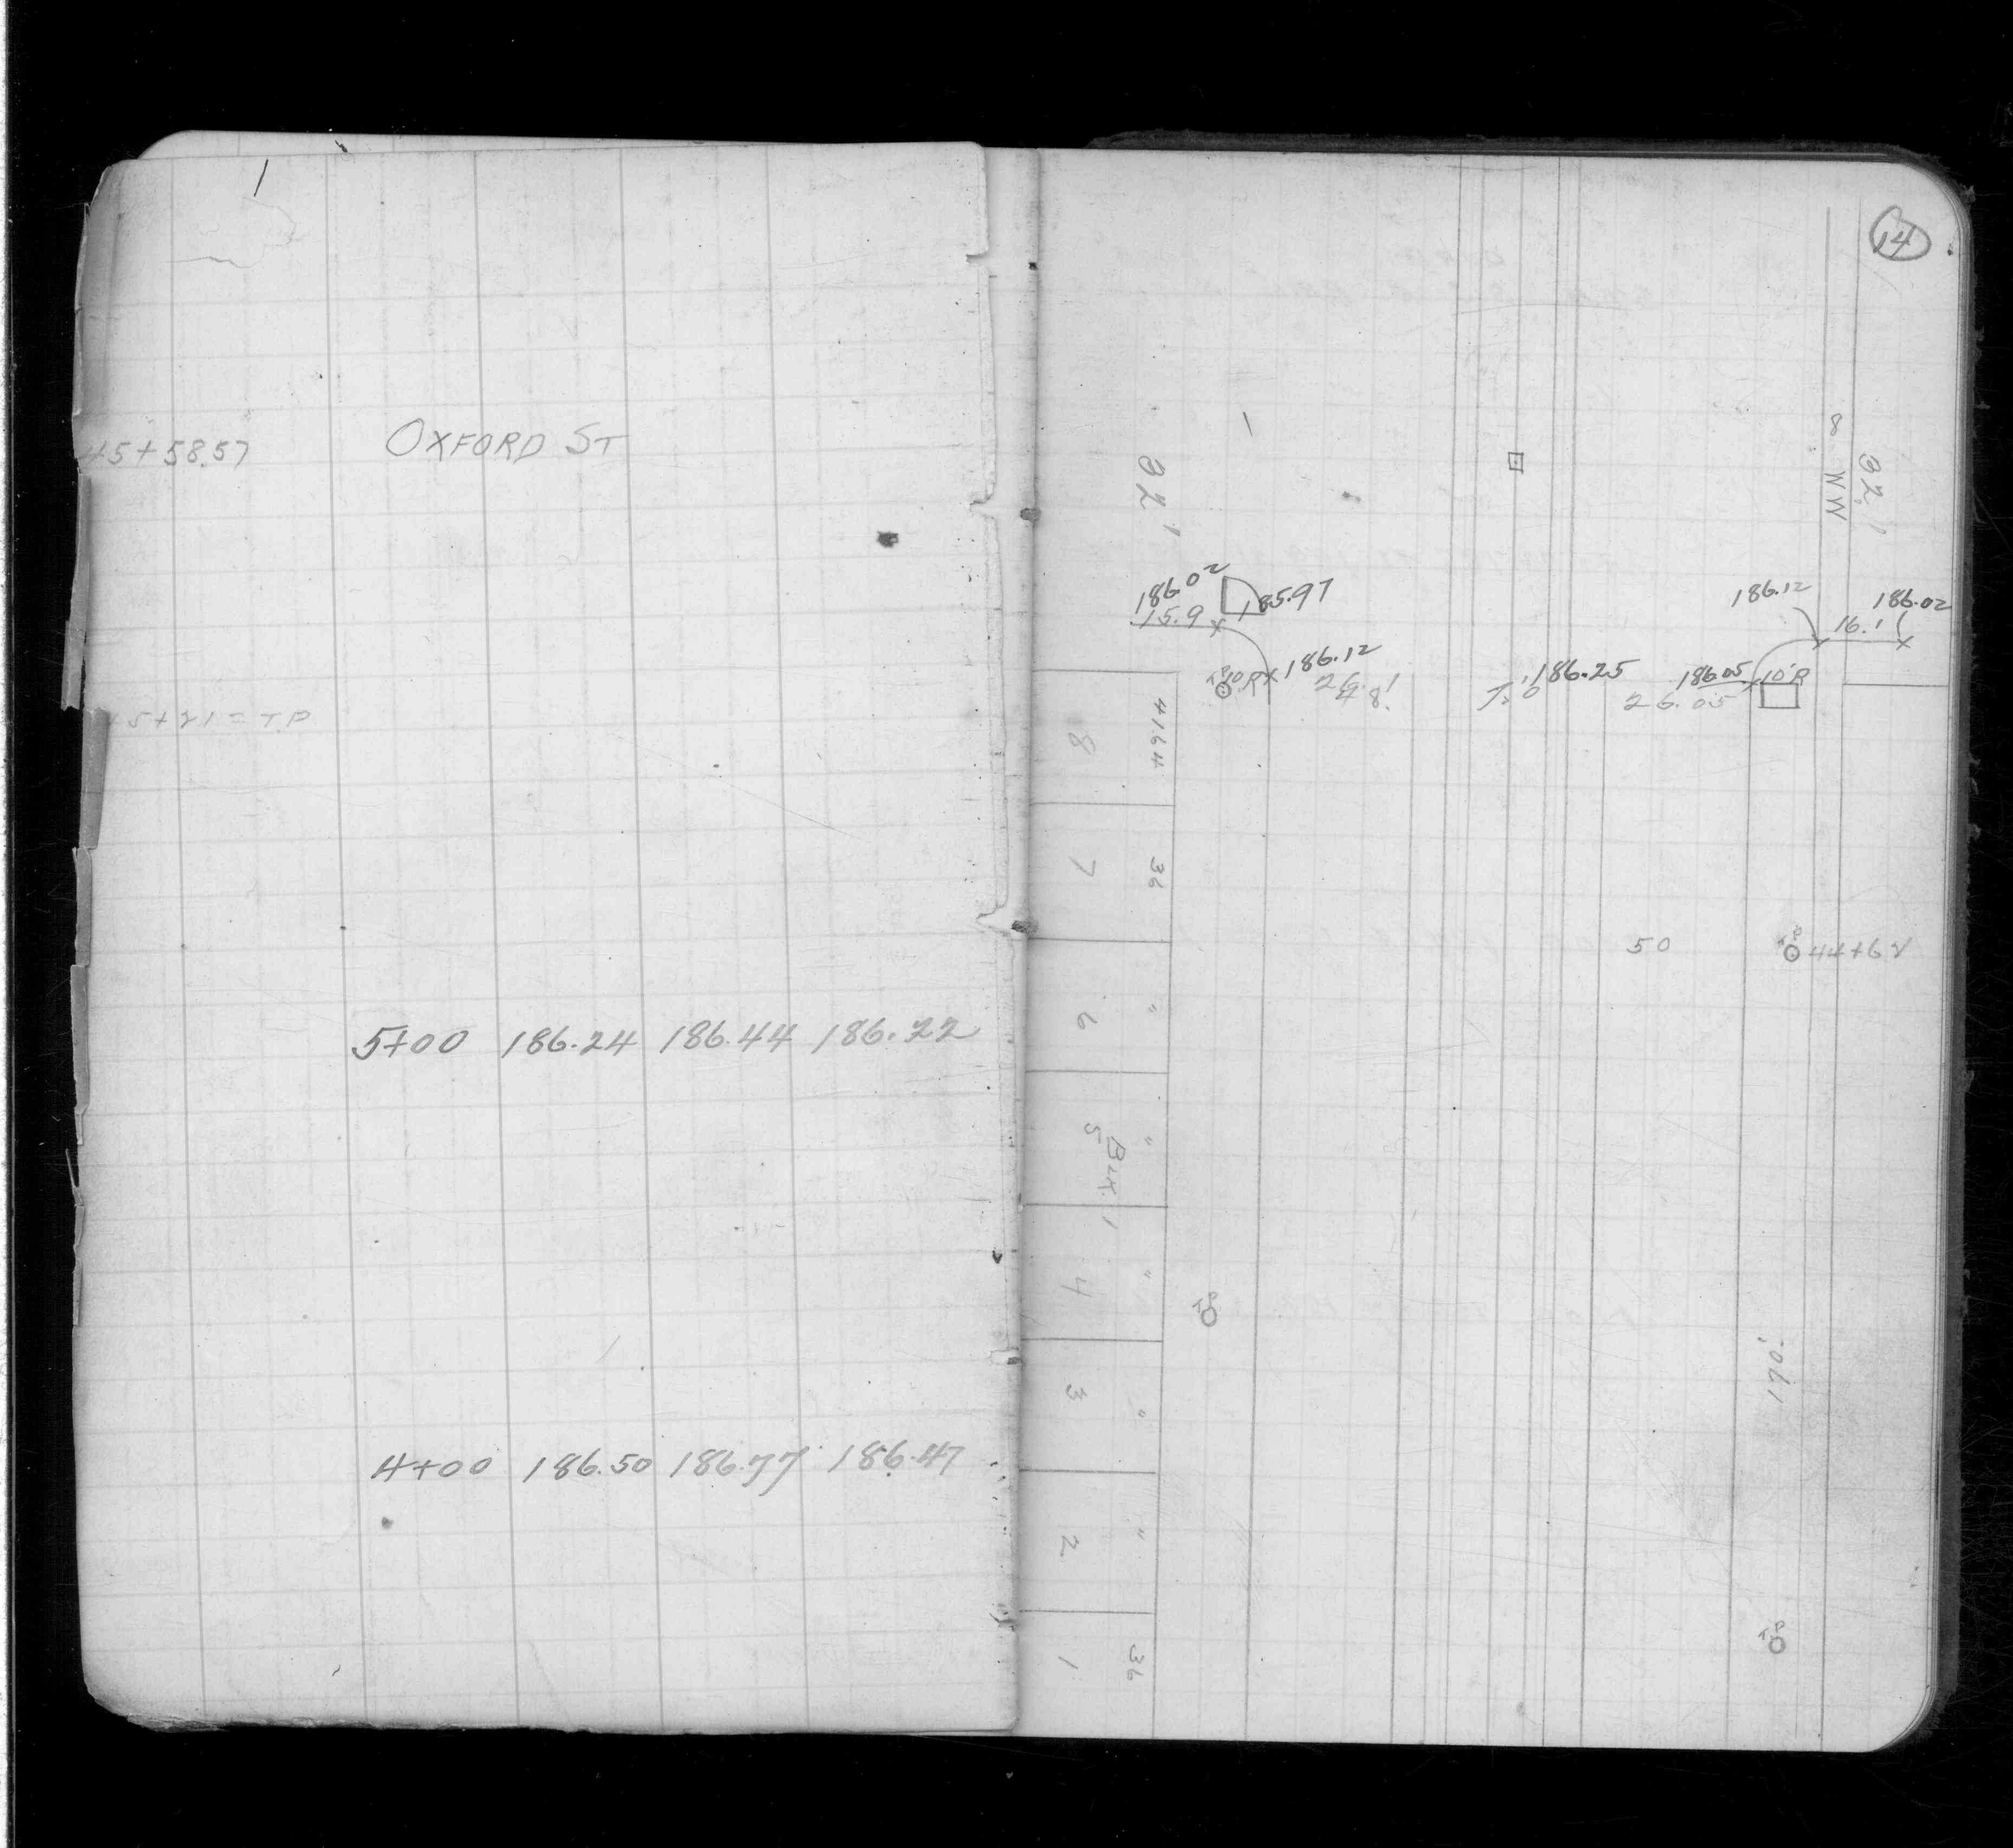 45+58.57 OXFORD ST
5+21 = T.P
5+00 186.24 186.44 186.22
4+00 186.50 186.77 186.47
14
∞
W W
186.02
185.97
15.9
10'R
186.12
186.25
186.05
10'R
26.05
186.12
186.02
16.1
41.64
8
36
7
50
44+62
"
6
"
5
"
4
"
3
"
2
36
1